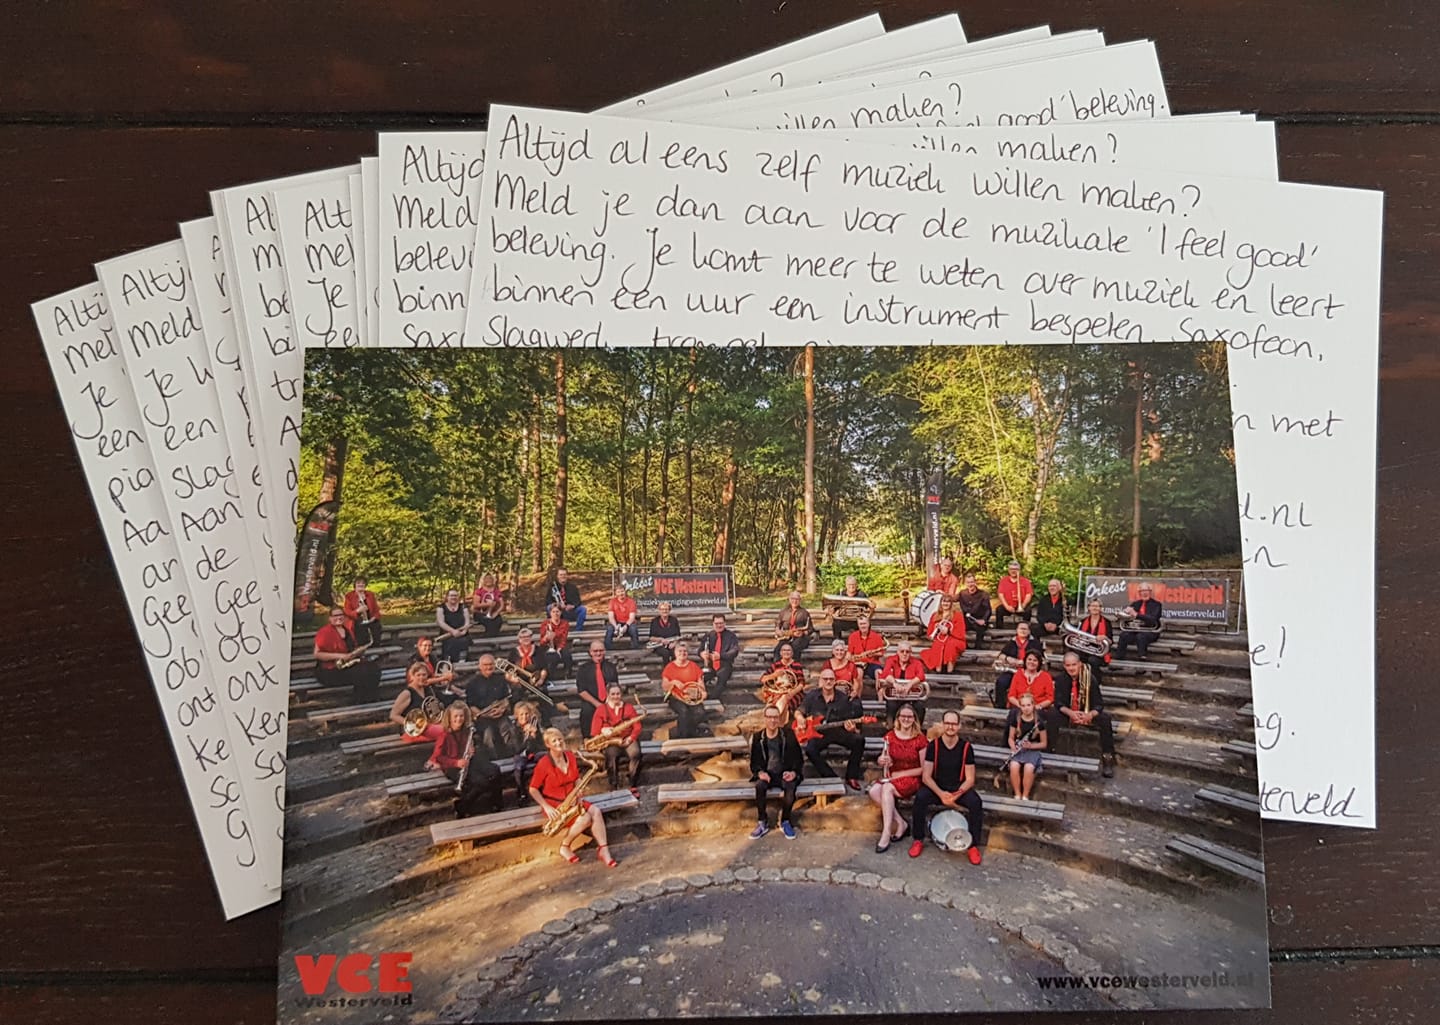 willen maken?
good' beleving.
willen maken?
Altijd al eens zelf muziek willen maken?
Meld je dan aan voor de muzikale 'I feel good'
beleving. Je komt meer te weten over muziek en leert
binnen een uur een instrument bespelen. Saxofoon,
Slagwerk, trompet
n met
d.nl
in
e!
g.
terveld
Altijd
Meld
belevi
binn
saxo
Alt
mel
Je
ee
Al
m
be
bi
tr
A
d
Altij
Meld
Je k
een
slag
Aan
de
Gee
ob
ont
Ker
sa
Alti
mel
Je
een
pia
Aa
ar
Gee
ob
ont
ke
sa
G
Orkest VCE Westerveld
muziekverenigingwesterveld.nl
Orkest VCE Westerveld
muziekverenigingwesterveld.nl
VCE
westerveld.nl
VCE
Westerveld
www.vcewesterveld.nl